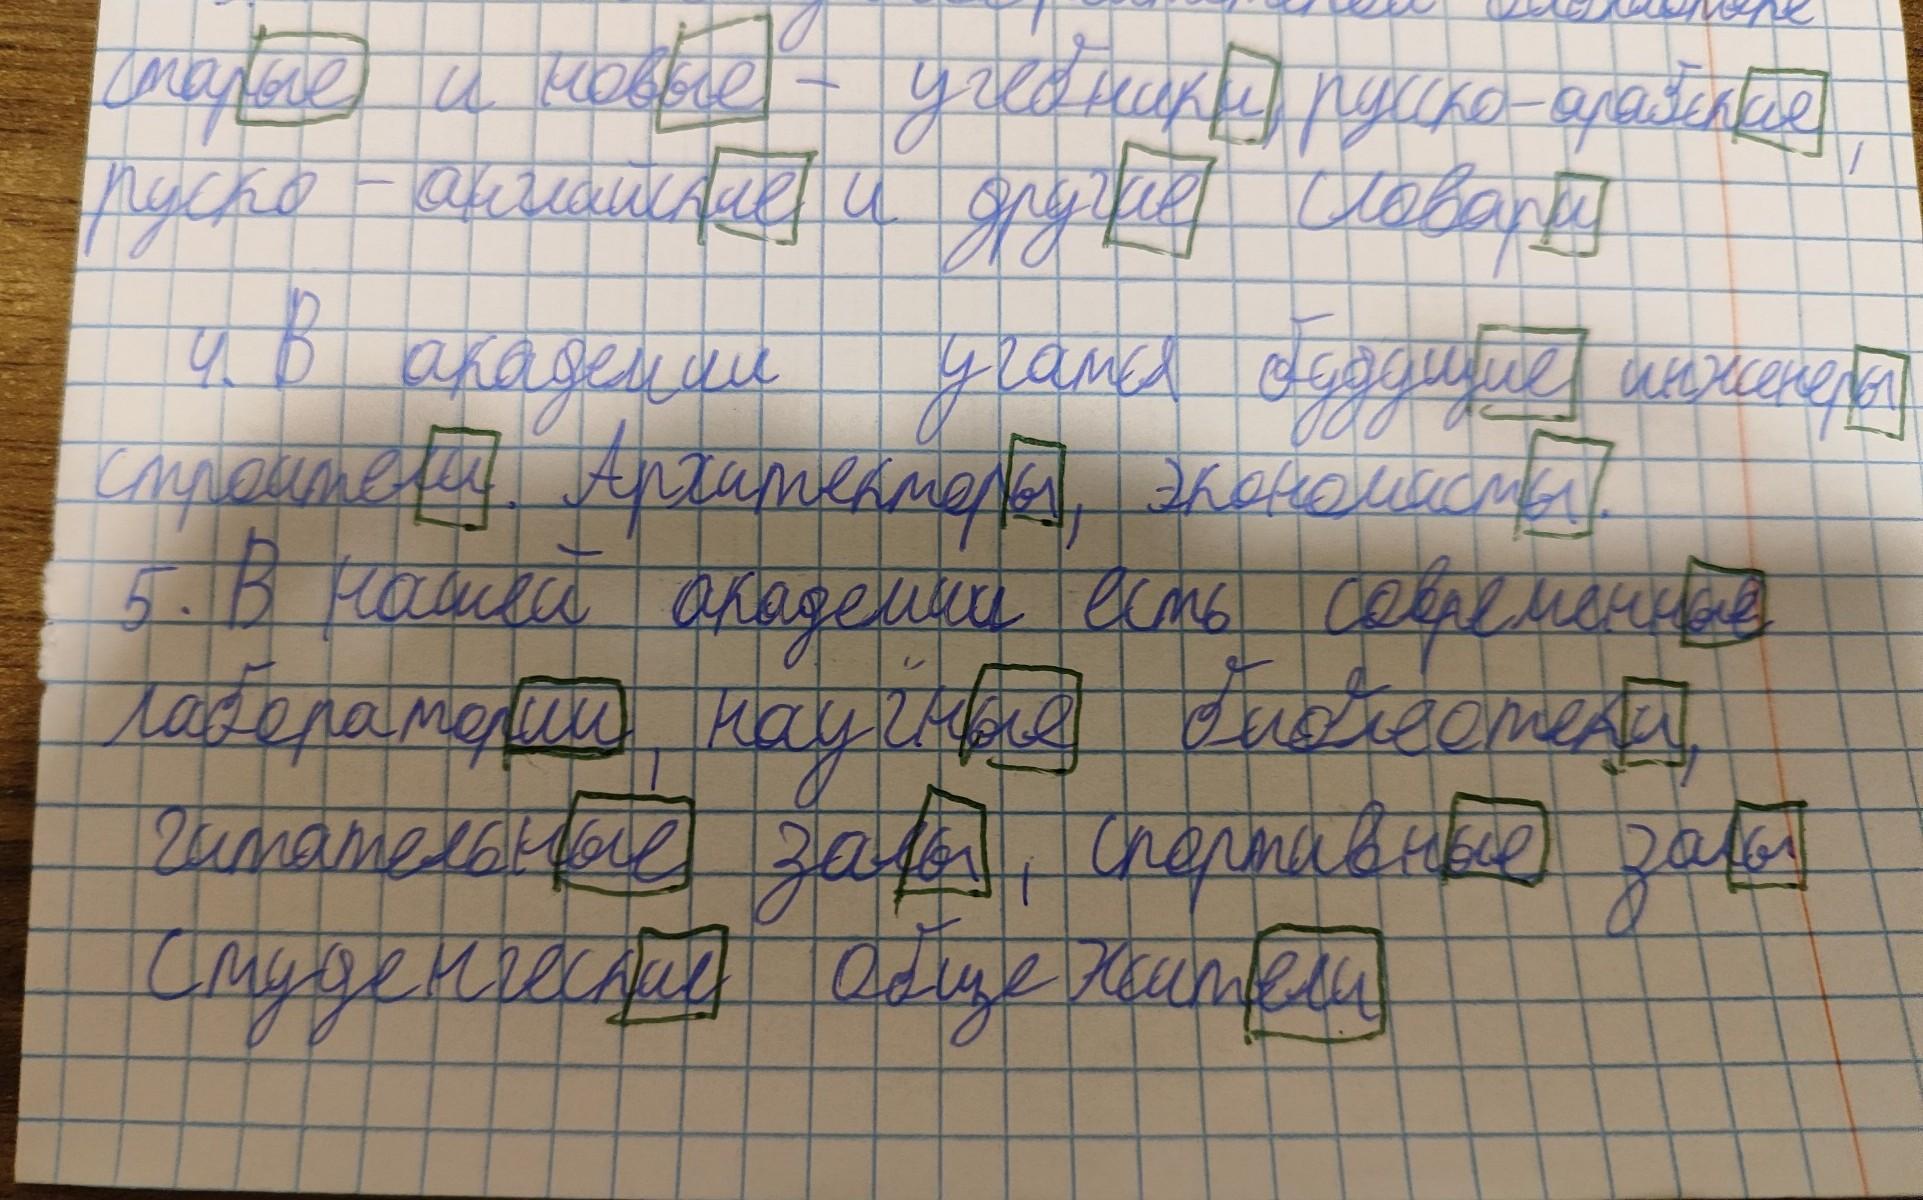 старые и новые - учебники, русско-арабские,
руско - английские и другие словари
4. В академии учатся будущие инженеры
строители. Архитекторы, экономисты.
5. В нашей академии есть современные
лаборатории, научные библеотеки,
читательные залы, спортивные залы
Студенческие общежители